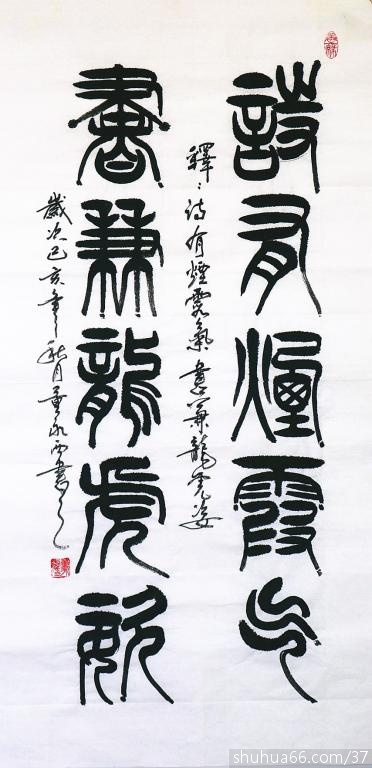 詩有煙霞气
釋：诗有煙霞氣書兼龍虎姿
書兼龍虎姿
歲次己亥年秋月永西書之
shuhua66.com/37